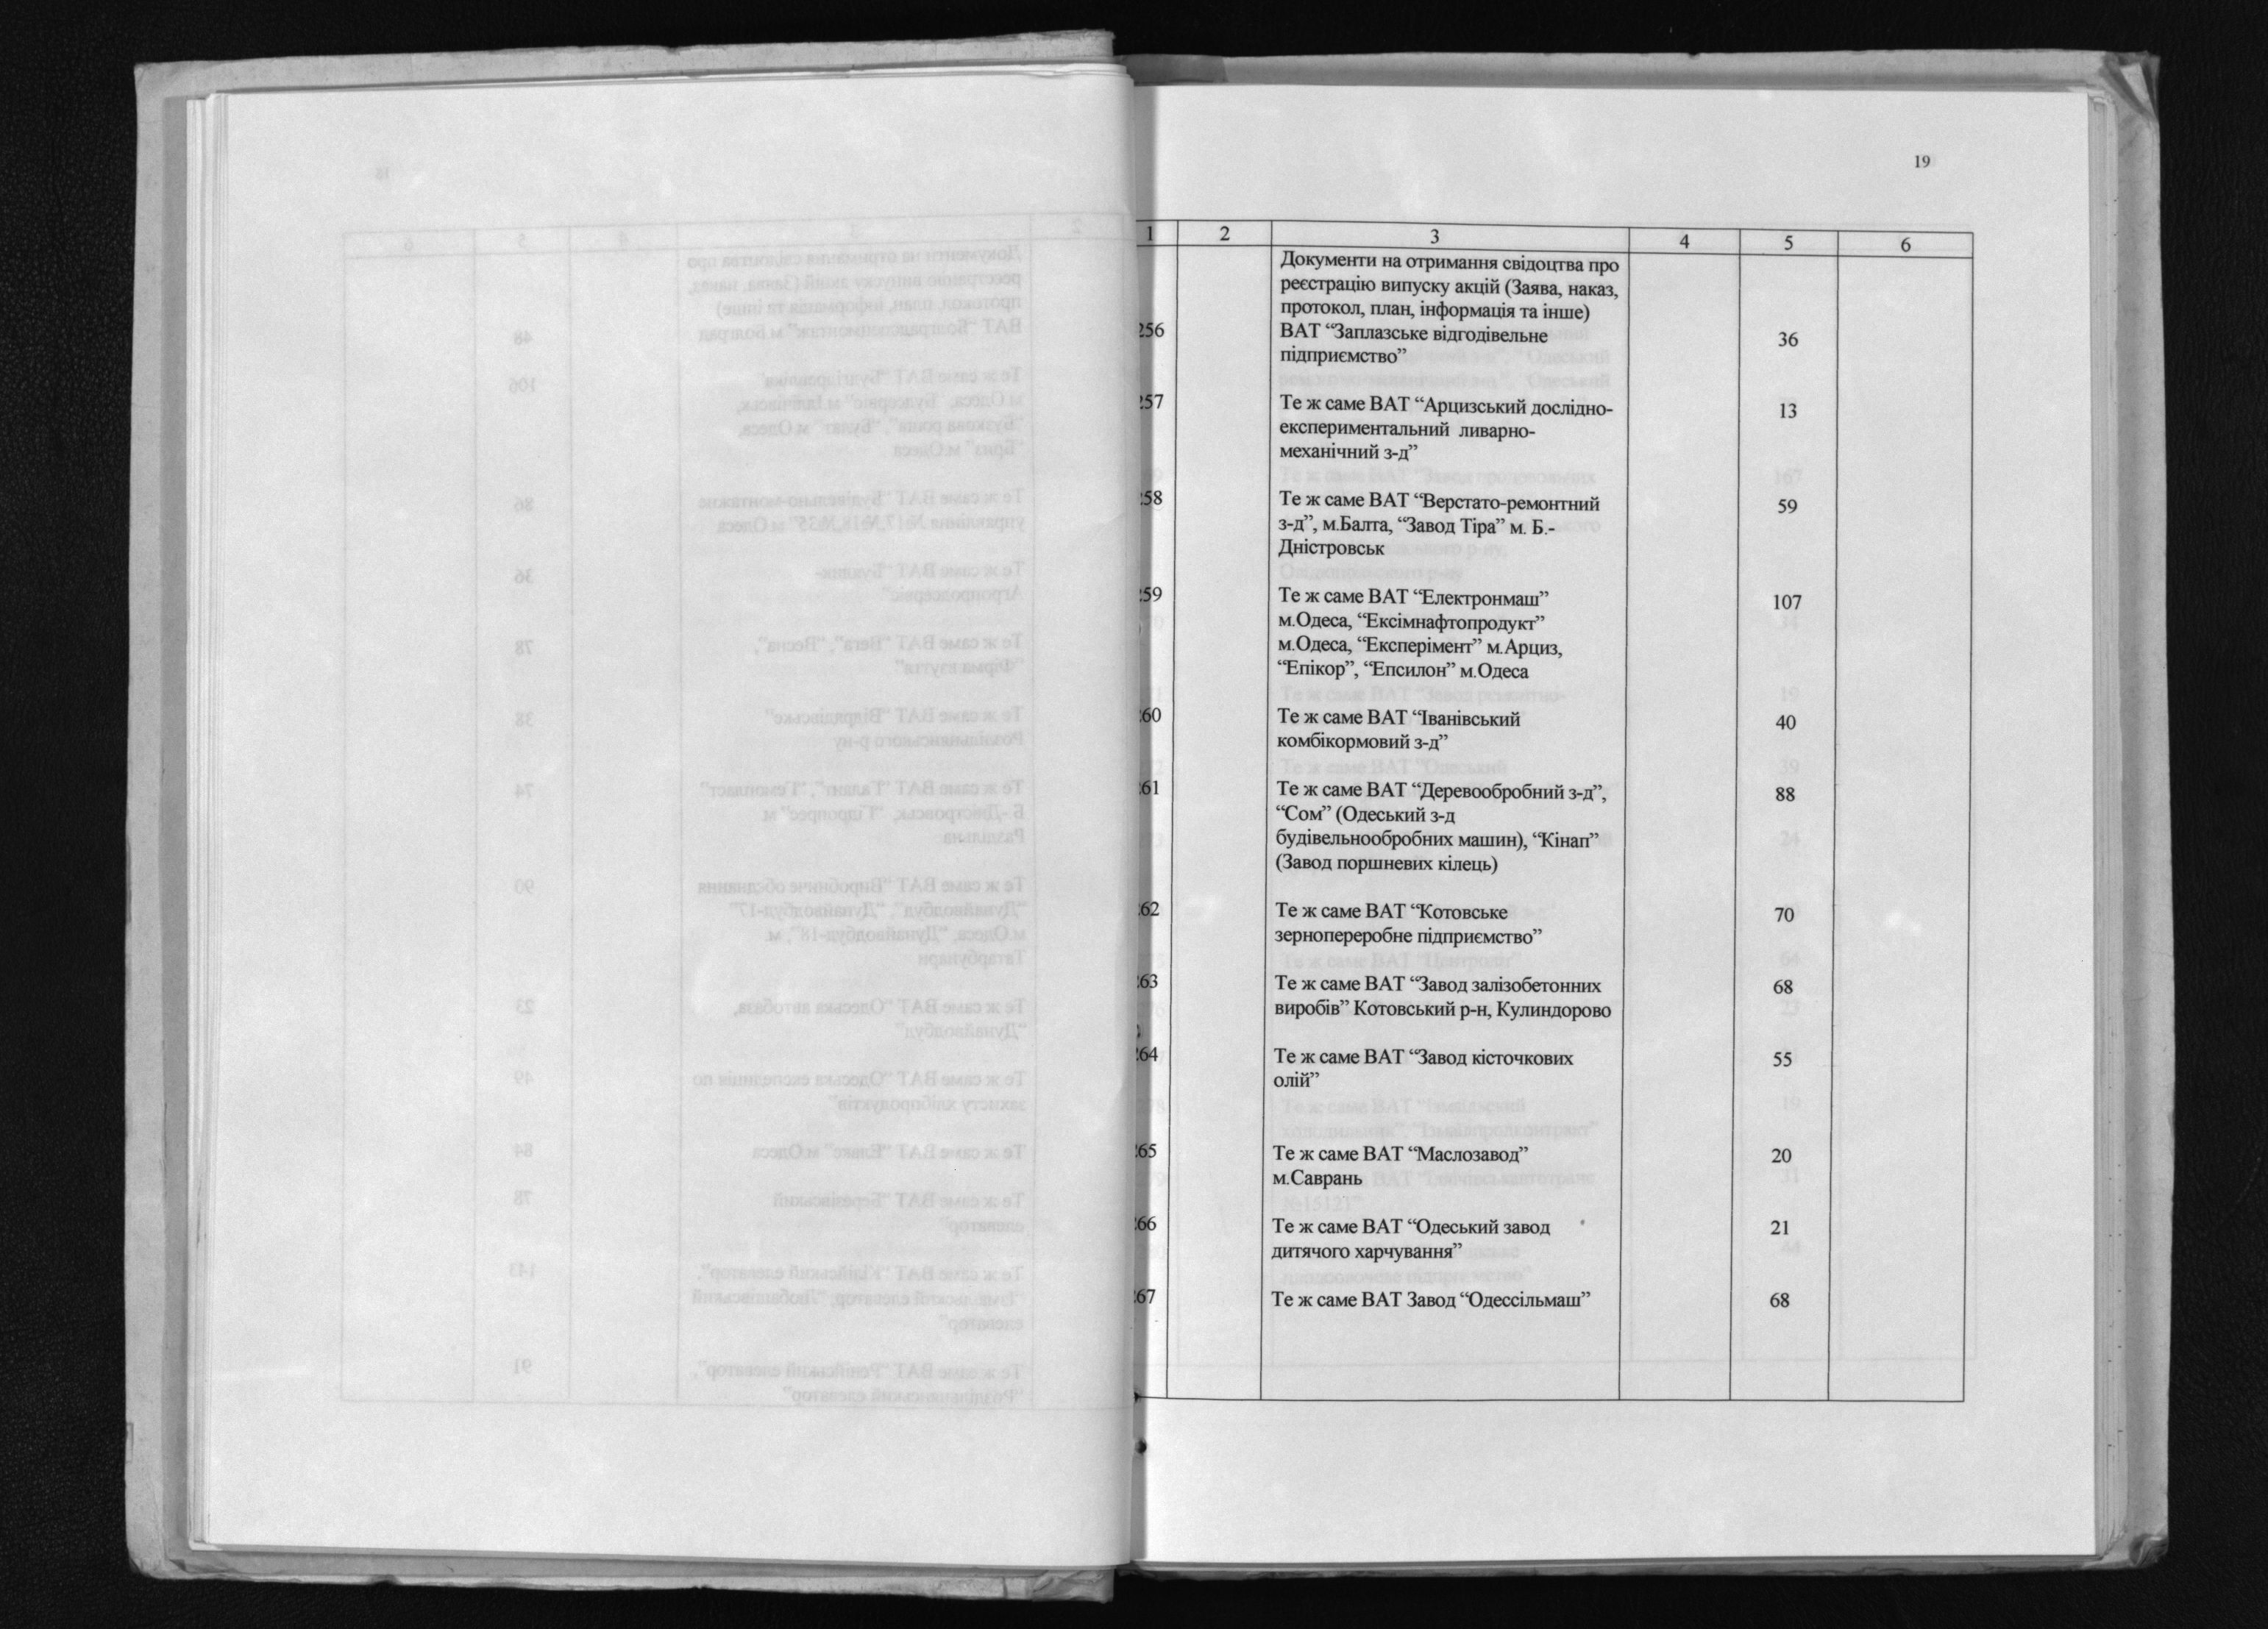 19
1 2 3 4 5 6
Документи на отримання свідоцтва про
реєстрацію випуску акцій (Заява, наказ,
протокол, план, інформація та інше)
256 ВАТ “Заплазське відгодівельне 36
підприємство”
257 Те ж саме ВАТ “Арцизський дослідно- 13
експериментальний ливарно-
механічний з-д”
258 Те ж саме ВАТ “Верстато-ремонтний 59
з-д”, м.Балта, “Завод Тіра” м. Б.-
Дністровськ
259 Те ж саме ВАТ “Електронмаш” 107
м.Одеса, “Ексімнафтопродукт”
м.Одеса, “Експерімент” м.Арциз,
“Епікор”, “Епсилон” м.Одеса
260 Те ж саме ВАТ “Іванівський 40
комбікормовий з-д”
261 Те ж саме ВАТ “Деревообробний з-д”, 88
“Сом” (Одеський з-д
будівельнообробних машин), “Кінап”
(Завод поршневих кілець)
262 Те ж саме ВАТ “Котовське 70
зернопереробне підприємство”
263 Те ж саме ВАТ “Завод залізобетонних 68
виробів” Котовський р-н, Кулиндорово
264 Те ж саме ВАТ “Завод кісточкових 55
олій”
265 Те ж саме ВАТ “Маслозавод” 20
м.Саврань
266 Те ж саме ВАТ “Одеський завод 21
дитячого харчування”
267 Те ж саме ВАТ Завод “Одессільмаш” 68